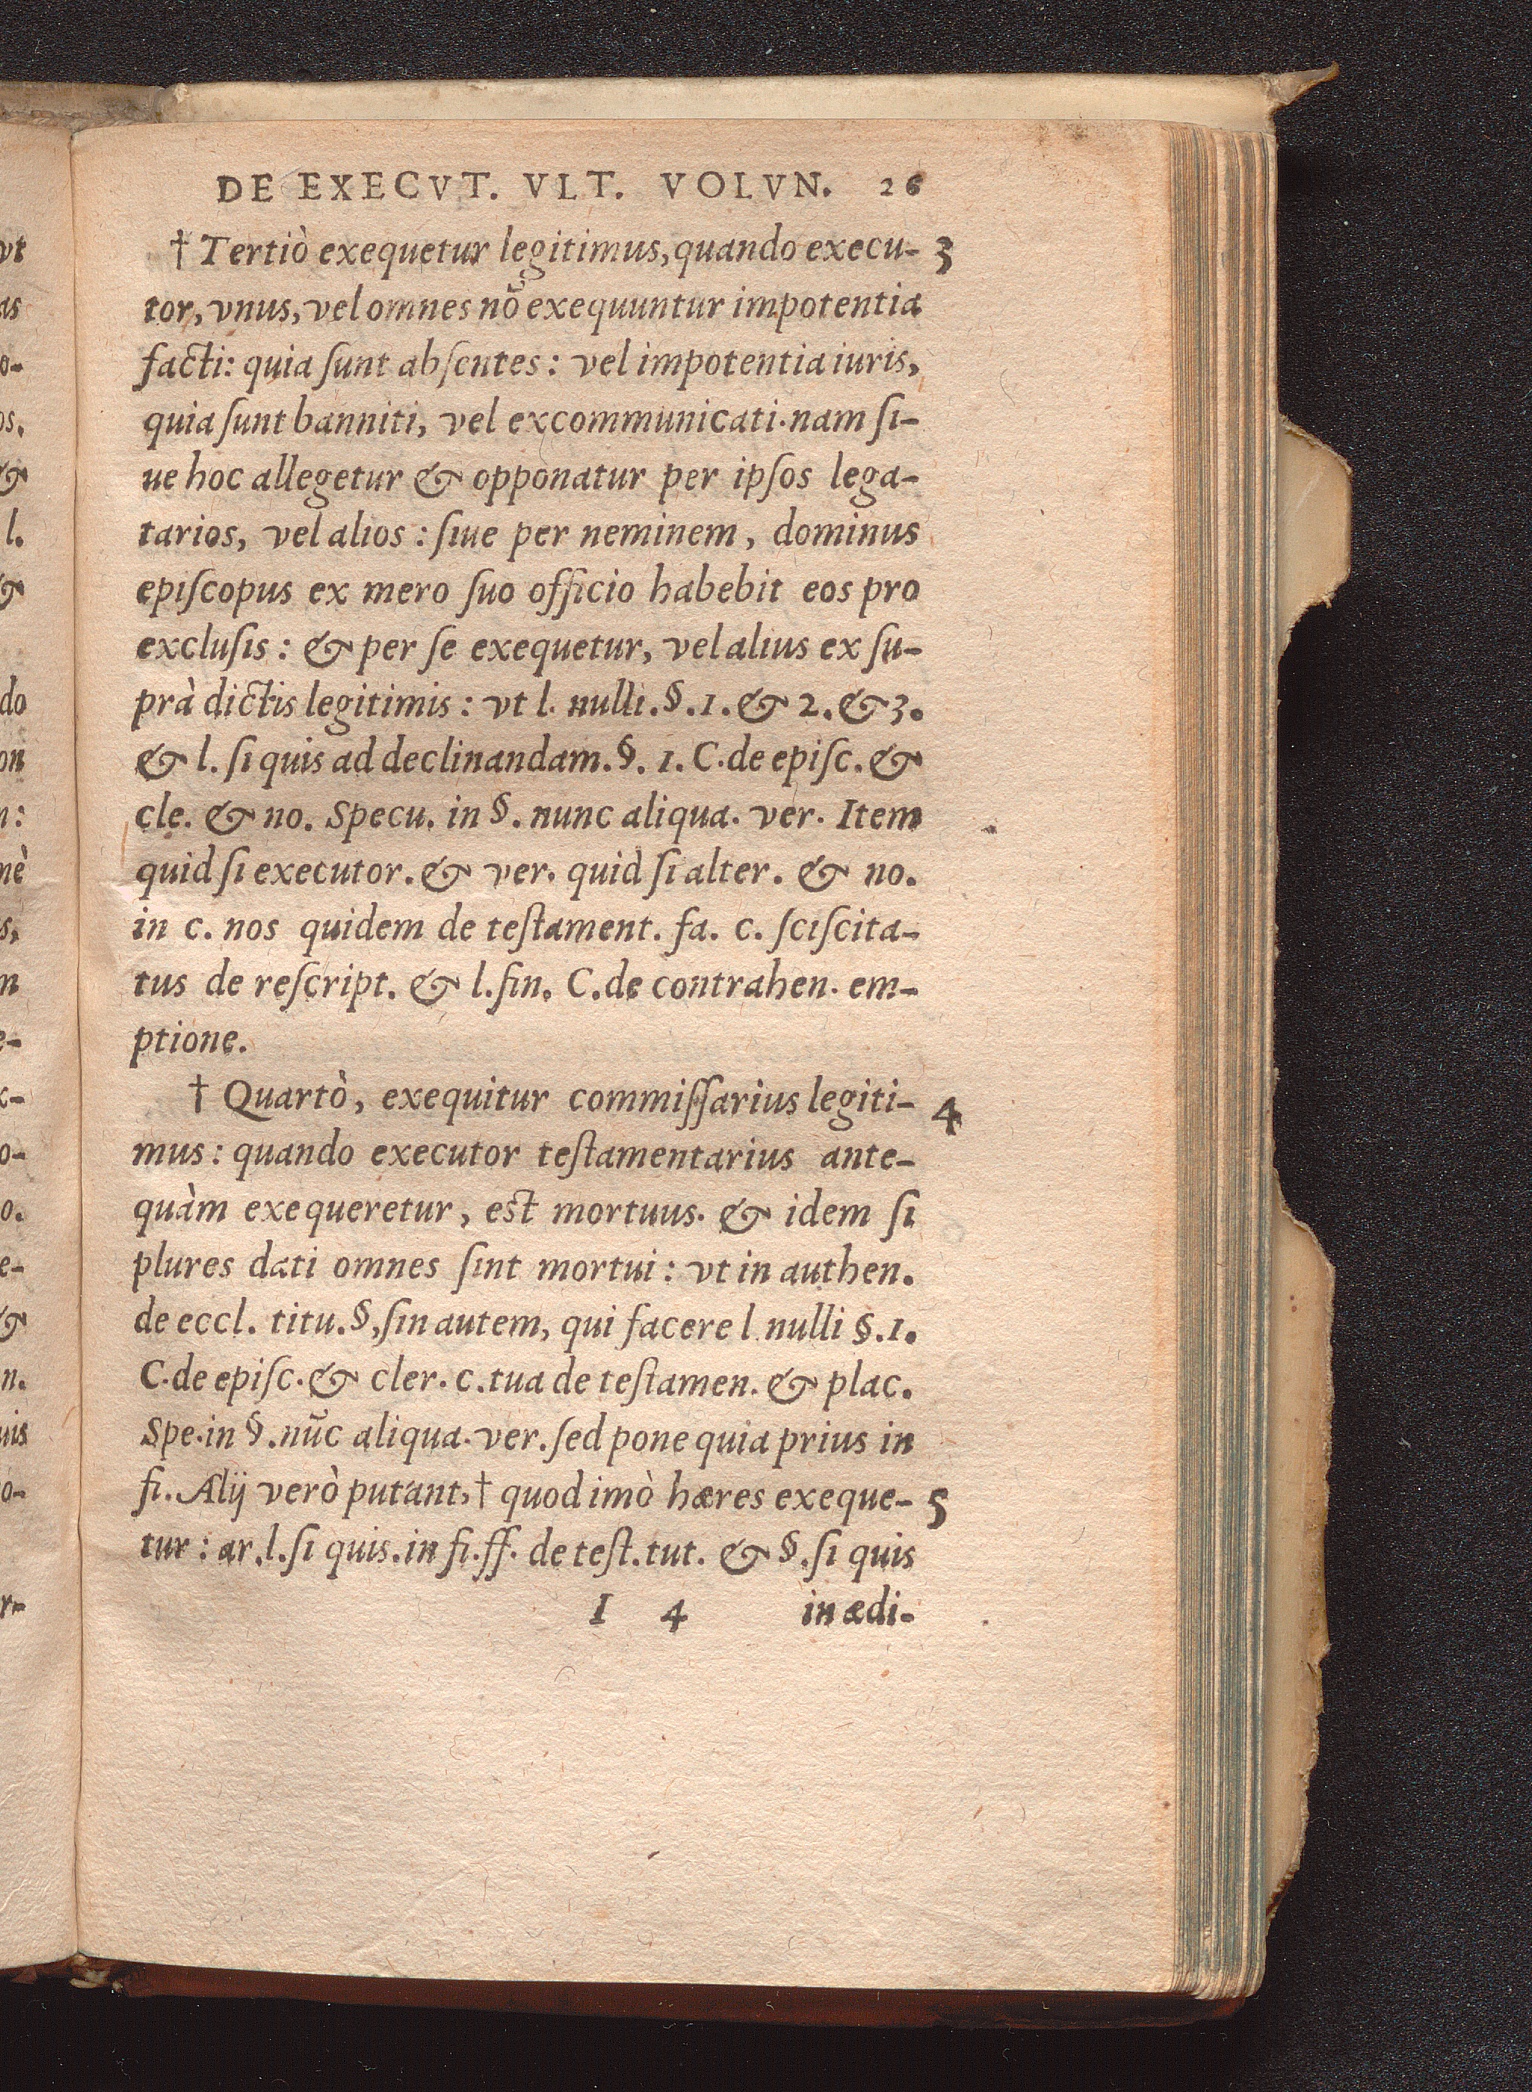 DE EXECVT. VLT. VOLVN. 26
† Tertiò exequetur legitimus, quando execu- 3
tor, vnus, vel omnes nō exequuntur impotentia
facti: quia ſunt abſentes: vel impotentia iuris,
quia ſunt banniti, vel excommunicati. nam ſi-
ue hoc allegetur & opponatur per ipſos lega-
tarios, vel alios: ſiue per neminem, dominus
epiſcopus ex mero ſuo officio habebit eos pro
excluſis: & per ſe exequetur, vel alius ex ſu-
prà dictis legitimis: vt l. nulli. §. 1. & 2. & 3.
& l. ſi quis ad declinandam. §. 1. C. de epiſc. &
cle. & no. Specu. in §. nunc aliqua. ver. Item
quid ſi executor. & ver. quid ſi alter. & no.
in c. nos quidem de teſtament. fa. c. ſciſcita-
tus de reſcript. & l. fin. C. de contrahen. em-
ptione.
† Quartò, exequitur commiſſarius legiti- 4
mus: quando executor teſtamentarius ante-
quàm exequeretur, eſt mortuus. & idem ſi
plures dati omnes ſint mortui: vt in authen.
de eccl. titu. §, ſin autem, qui facere l nulli §. 1.
C. de epiſc. & cler. c. tua de teſtamen. & plac.
Spe. in §. nūc aliqua. ver. ſed pone quia prius in
fi. Alij verò putant, † quod imò hæres exeque- 5
tur: ar. l. ſi quis. in fi. ff. de teſt. tut. & §. ſi quis
I 4 in ædi-
vt
as
o-
os.
&
l.
&
do
on
n:
nè
s,
m
e-
x-
o-
o.
e-
&
n.
uis
o-
r-